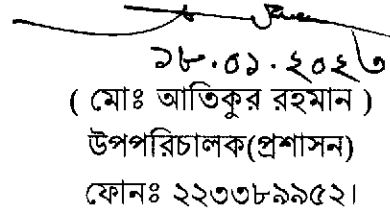 ১৮.০১.২০২৩
( মোঃ আতিকুর রহমান )
উপপরিচালক(প্রশাসন)
ফোনঃ ২২৩৩৮৯৯৫২।